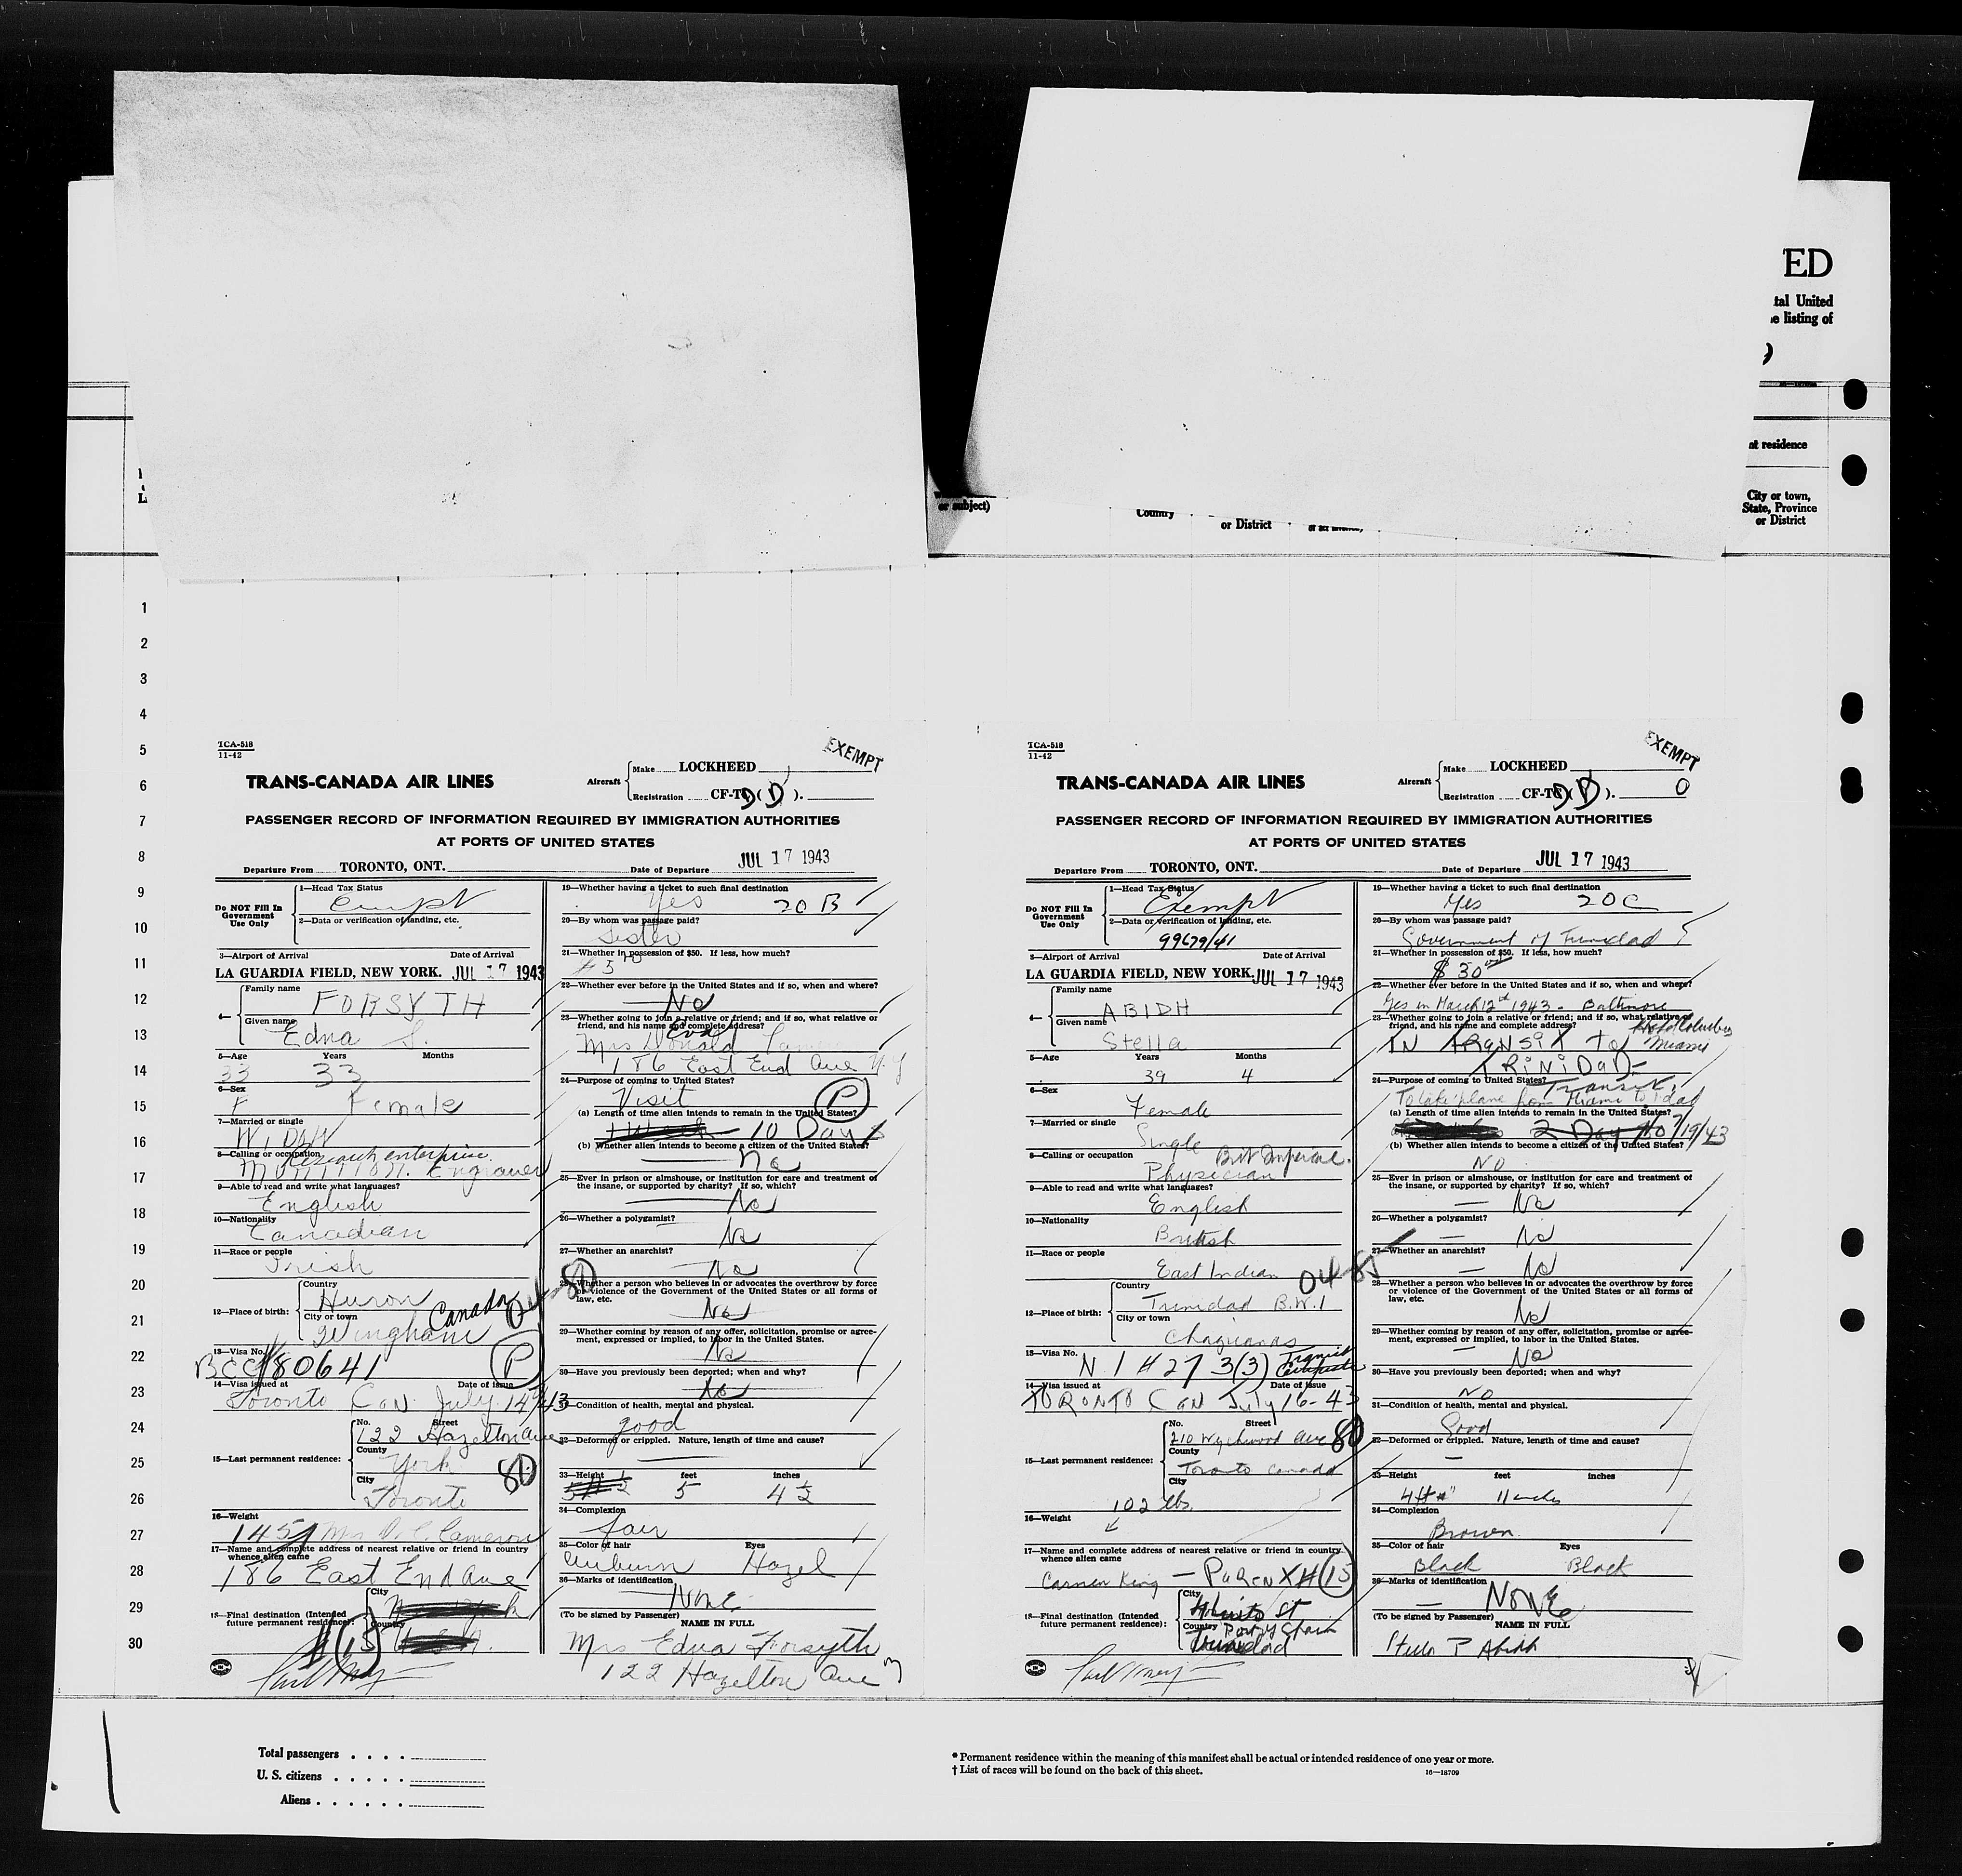 ED
tal United
e listing of
at residence
or subject)
Country
or District
City or town,
State, Province
or District
1
2
3
4
5
6
7
8
9
10
11
12
13
14
15
16
17
18
19
20
21
22
23
24
25
26
27
28
29
30
TCA-518
11-42
EXEMPT
TRANS-CANADA AIR LINES
Aircraft
Make LOCKHEED
Registration CF-TC (D).
PASSENGER RECORD OF INFORMATION REQUIRED BY IMMIGRATION AUTHORITIES
AT PORTS OF UNITED STATES
Departure From TORONTO, ONT. Date of Departure JUL 17 1943
Do NOT Fill In
Government
Use Only
1—Head Tax Status
Exempt
2—Data or verification of landing, etc.
3—Airport of Arrival Date of Arrival
LA GUARDIA FIELD, NEW YORK. JUL 17 1943
4—
Family name
FORSYTH
Given name
Edna S.
5—Age Years Months
33 33
6—Sex
F Female
7—Married or single
Widow
8—Calling or occupation
Research enterprise
Munition. Engraver
9—Able to read and write what languages?
English
10—Nationality
Canadian
11—Race or people
Irish
12—Place of birth:
Country
Huron Canada
City or town
Wingham
13—Visa No.
BCC 180641 P
14—Visa issued at Date of issue
Toronto Can. July 14/43
15—Last permanent residence:
No. Street
122 Hazelton Ave
County
York
City
Toronto
80
16—Weight
145 Mrs D. C. Cameron
17—Name and complete address of nearest relative or friend in country
whence alien came
186 East End Ave
18—Final destination (Intended
future permanent residence):
City
Country
(15)
19—Whether having a ticket to such final destination
Yes 20 B
20—By whom was passage paid?
Sister
21—Whether in possession of $50. If less, how much?
$5
22—Whether ever before in the United States and if so, when and where?
No
23—Whether going to join a relative or friend; and if so, what relative or
friend, and his name and complete address?
Mrs Donald
186 East End Ave N.Y
24—Purpose of coming to United States?
Visit P
(a) Length of time alien intends to remain in the United States?
1 Week 10 Days
(b) Whether alien intends to become a citizen of the United States?
No
25—Ever in prison or almshouse, or institution for care and treatment of
the insane, or supported by charity? If so, which?
No
26—Whether a polygamist?
No
27—Whether an anarchist?
No
28—Whether a person who believes in or advocates the overthrow by force
or violence of the Government of the United States or all forms of
law, etc.
No
29—Whether coming by reason of any offer, solicitation, promise or agree-
ment, expressed or implied, to labor in the United States.
No
30—Have you previously been deported; when and why?
No
31—Condition of health, mental and physical.
good
32—Deformed or crippled. Nature, length of time and cause?
33—Height feet inches
5 4½
34—Complexion
fair
35—Color of hair Eyes
Auburn Hazel
36—Marks of identification
None
(To be signed by Passenger) NAME IN FULL
Mrs Edna Forsyth
122 Hazelton Ave
TCA-518
11-42
EXEMPT
TRANS-CANADA AIR LINES
Aircraft
Make LOCKHEED
Registration CF-TC (D). 0
PASSENGER RECORD OF INFORMATION REQUIRED BY IMMIGRATION AUTHORITIES
AT PORTS OF UNITED STATES
Departure From TORONTO, ONT. Date of Departure JUL 17 1943
Do NOT Fill In
Government
Use Only
1—Head Tax Status
Exempt
2—Data or verification of landing, etc.
99679/41
3—Airport of Arrival Date of Arrival
LA GUARDIA FIELD, NEW YORK. JUL 17 1943
4—
Family name
ABIDH
Given name
Stella
5—Age Years Months
39 4
6—Sex
Female
7—Married or single
Single
8—Calling or occupation
Physician
9—Able to read and write what languages?
English
10—Nationality
British
11—Race or people
East Indian
12—Place of birth:
Country
Trinidad B.W.I
City or town
Chaguanas
13—Visa No.
N 1 # 273(3) Transit Certificate
14—Visa issued at Date of issue
TORONTO CAN July 16-43
15—Last permanent residence:
No. Street
210 Wychwood Ave 80
County
Toronto Canada
City
102 lbs.
16—Weight
17—Name and complete address of nearest relative or friend in country
whence alien came
Carmen King — (15)
18—Final destination (Intended
future permanent residence):
City
St
Country
Trinidad
19—Whether having a ticket to such final destination
Yes 20C
20—By whom was passage paid?
Government of Trinidad
21—Whether in possession of $50. If less, how much?
$30
22—Whether ever before in the United States and if so, when and where?
Yes in March 12 1943 - Baltimore
23—Whether going to join a relative or friend; and if so, what relative or
friend, and his name and complete address?
Hotel Columbus
Miami
IN TRANSIT TO
TRINIDAD
24—Purpose of coming to United States?
Transit
To take plane from Miami to T'dad
(a) Length of time alien intends to remain in the United States?
2 Days to 7/19/43
(b) Whether alien intends to become a citizen of the United States?
NO
25—Ever in prison or almshouse, or institution for care and treatment of
the insane, or supported by charity? If so, which?
No
26—Whether a polygamist?
No
27—Whether an anarchist?
No
28—Whether a person who believes in or advocates the overthrow by force
or violence of the Government of the United States or all forms of
law, etc.
No
29—Whether coming by reason of any offer, solicitation, promise or agree-
ment, expressed or implied, to labor in the United States.
No
30—Have you previously been deported; when and why?
NO
31—Condition of health, mental and physical.
Good
32—Deformed or crippled. Nature, length of time and cause?
33—Height feet inches
4 11 inches
34—Complexion
Brown
35—Color of hair Eyes
Black Black
36—Marks of identification
NONE
(To be signed by Passenger) NAME IN FULL
Stella P Abidh
Total passengers . . . .
U. S. citizens . . . . .
Aliens . . . . . .
* Permanent residence within the meaning of this manifest shall be actual or intended residence of one year or more.
† List of races will be found on the back of this sheet. 16—18709